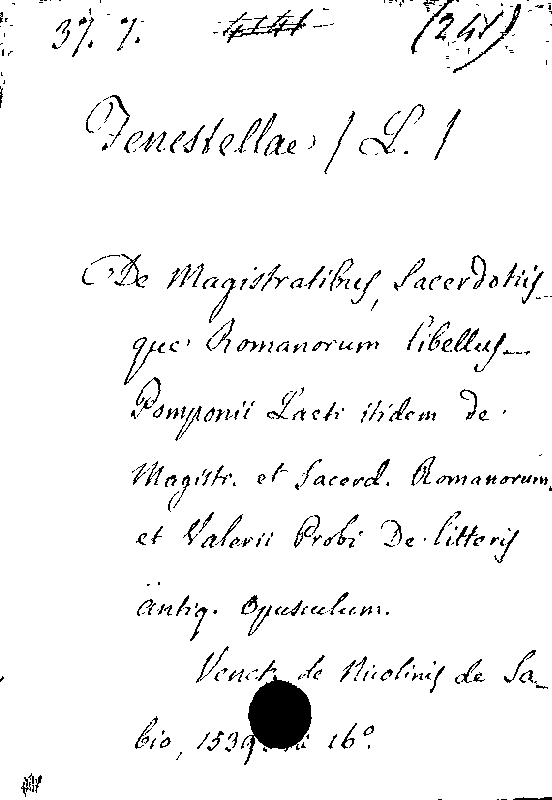 37. 7. 4141 (241)
Fenestellae / L. /
De Magistratibus, Sacerdotiis
que Romanorum libellus—
Pomponii Laeti itidem de
Magistr. et Sacerd. Romanorum.
et Valerii Probi De litteris
antiq. Opusculum.
Venet. de Nicolinis de Sa-
bio, 1539 16°.